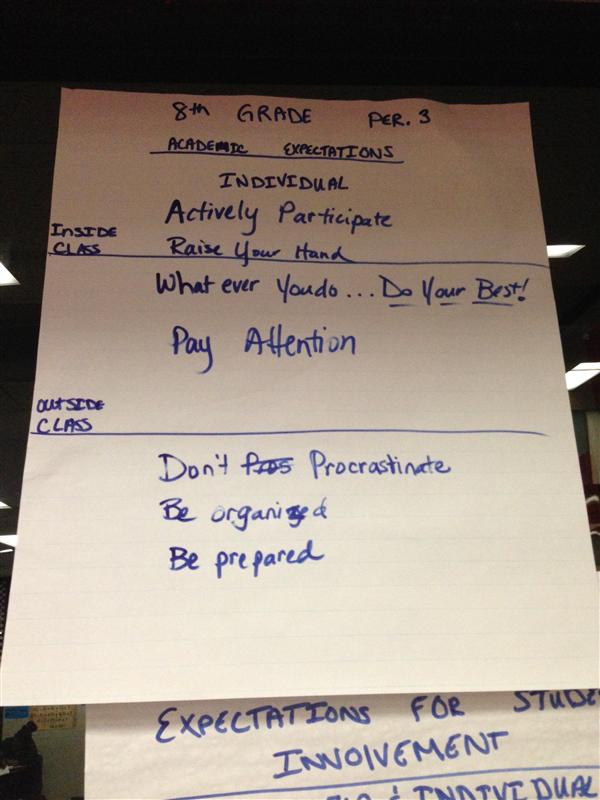 8th GRADE PER. 3
ACADEMIC EXPECTATIONS
INDIVIDUAL
Actively Participate
INSIDE CLASS
Raise Your Hand
What ever You do ... Do Your Best!
Pay Attention
OUTSIDE CLASS
Don't Procrastinate
Be organized
Be prepared
EXPECTATIONS FOR STUDE
INNOIVEMENT
INDIVIDUAL